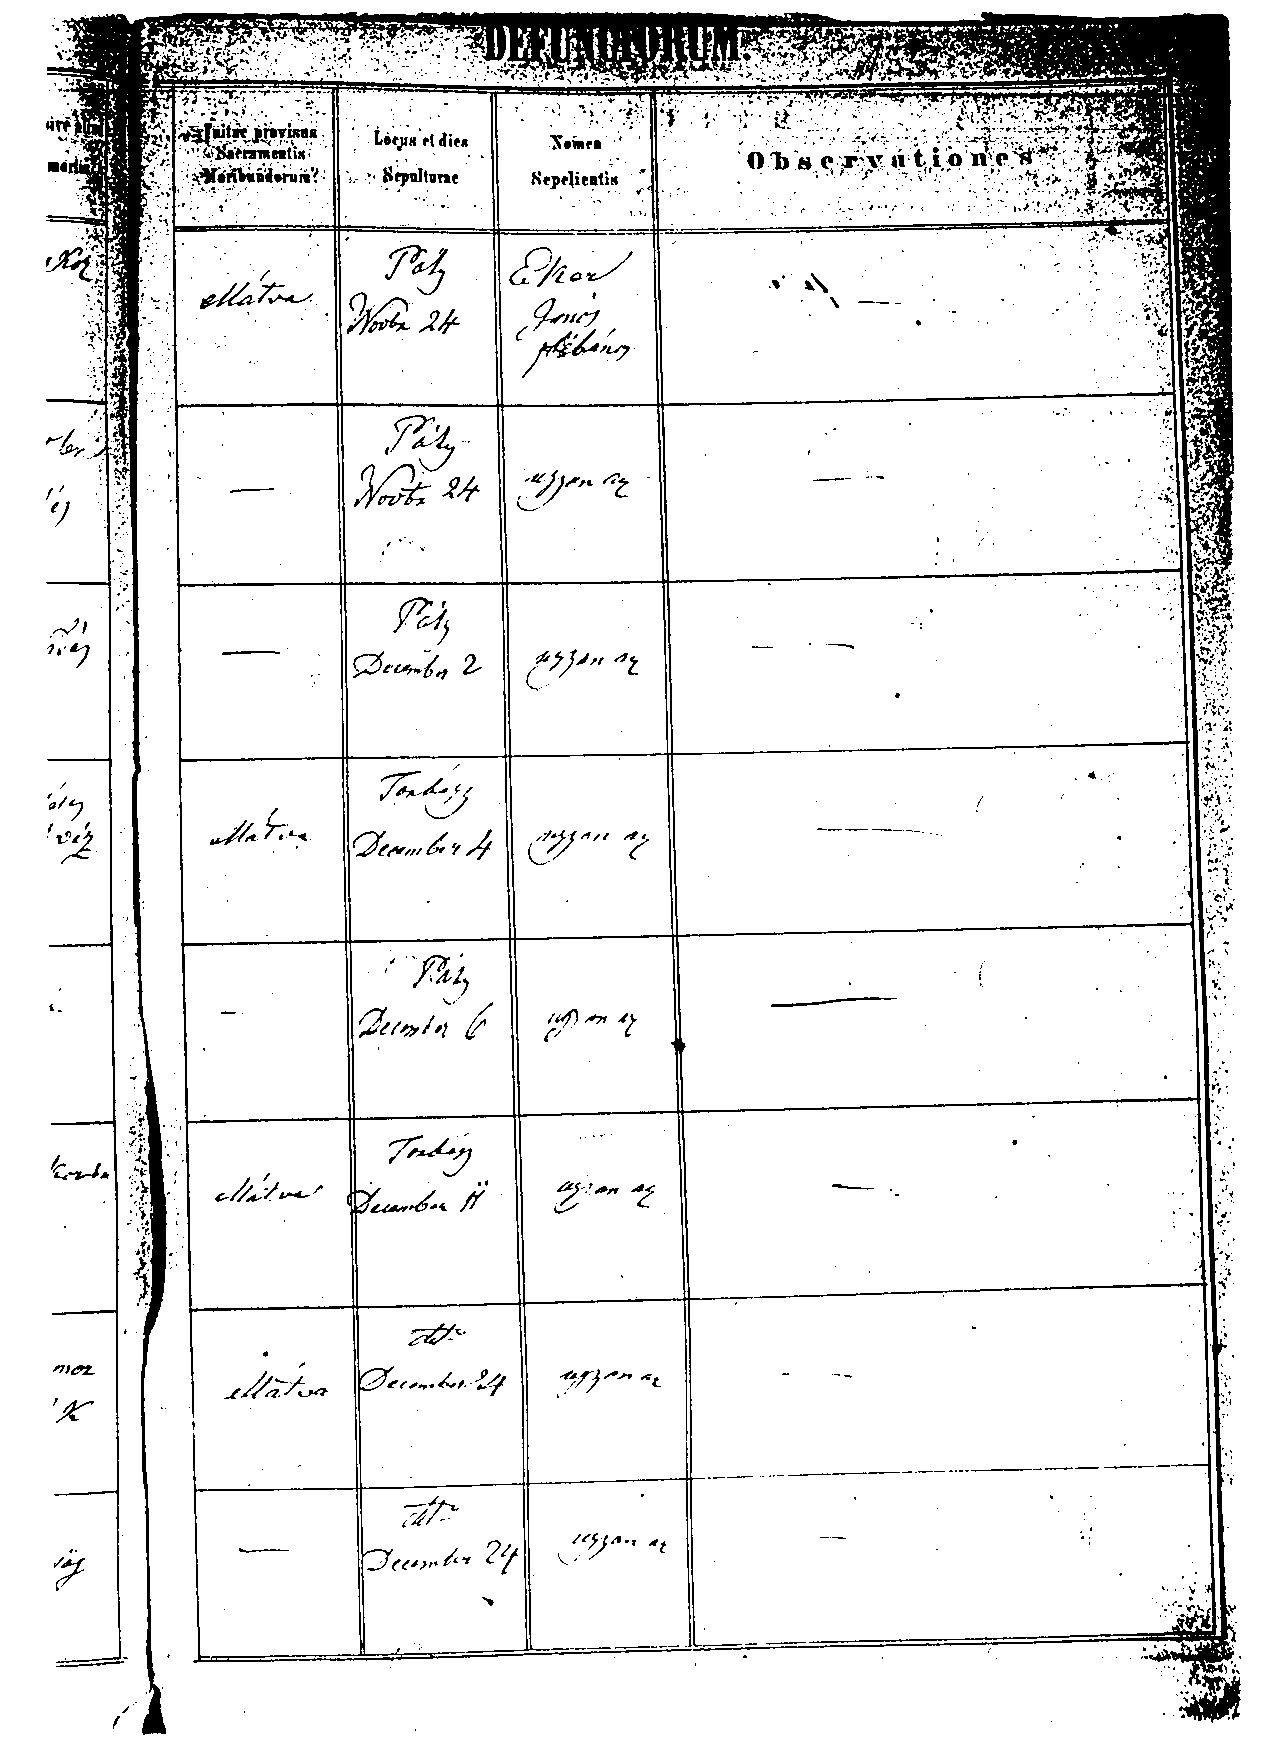 DEFUNCTORUM.
Fuitne provisus
Sacramentis
Moribundorum?
Locus et dies
Sepulturae
Nomen
Sepelientis
Observationes
Ellátva
Páty
Novbr 24
János
plébános
—
Páty
Novbr 24
ugyan az
—
—
Páty
December 2
ugyan az
—
Ellátva
Torbágy
December 4
ugyan az
—
—
Páty
December 6
ugyan az
—
Ellátva
Torbágy
December 11
ugyan az
—
Ellátva
dtto
December 24
ugyan az
—
—
dtto
December 24
ugyan az
—